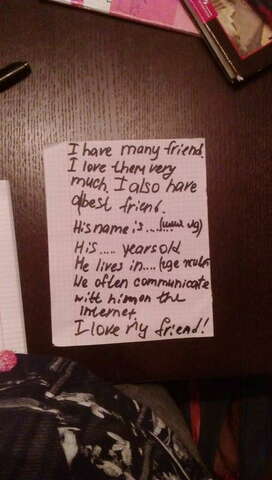 I have many friend.
I love them very
much. I also have
a best friend.
His name is....(имя др)
His.... years old
He lives in....(где живёт
We often communicate
with him on the
Internet.
I love my friend!